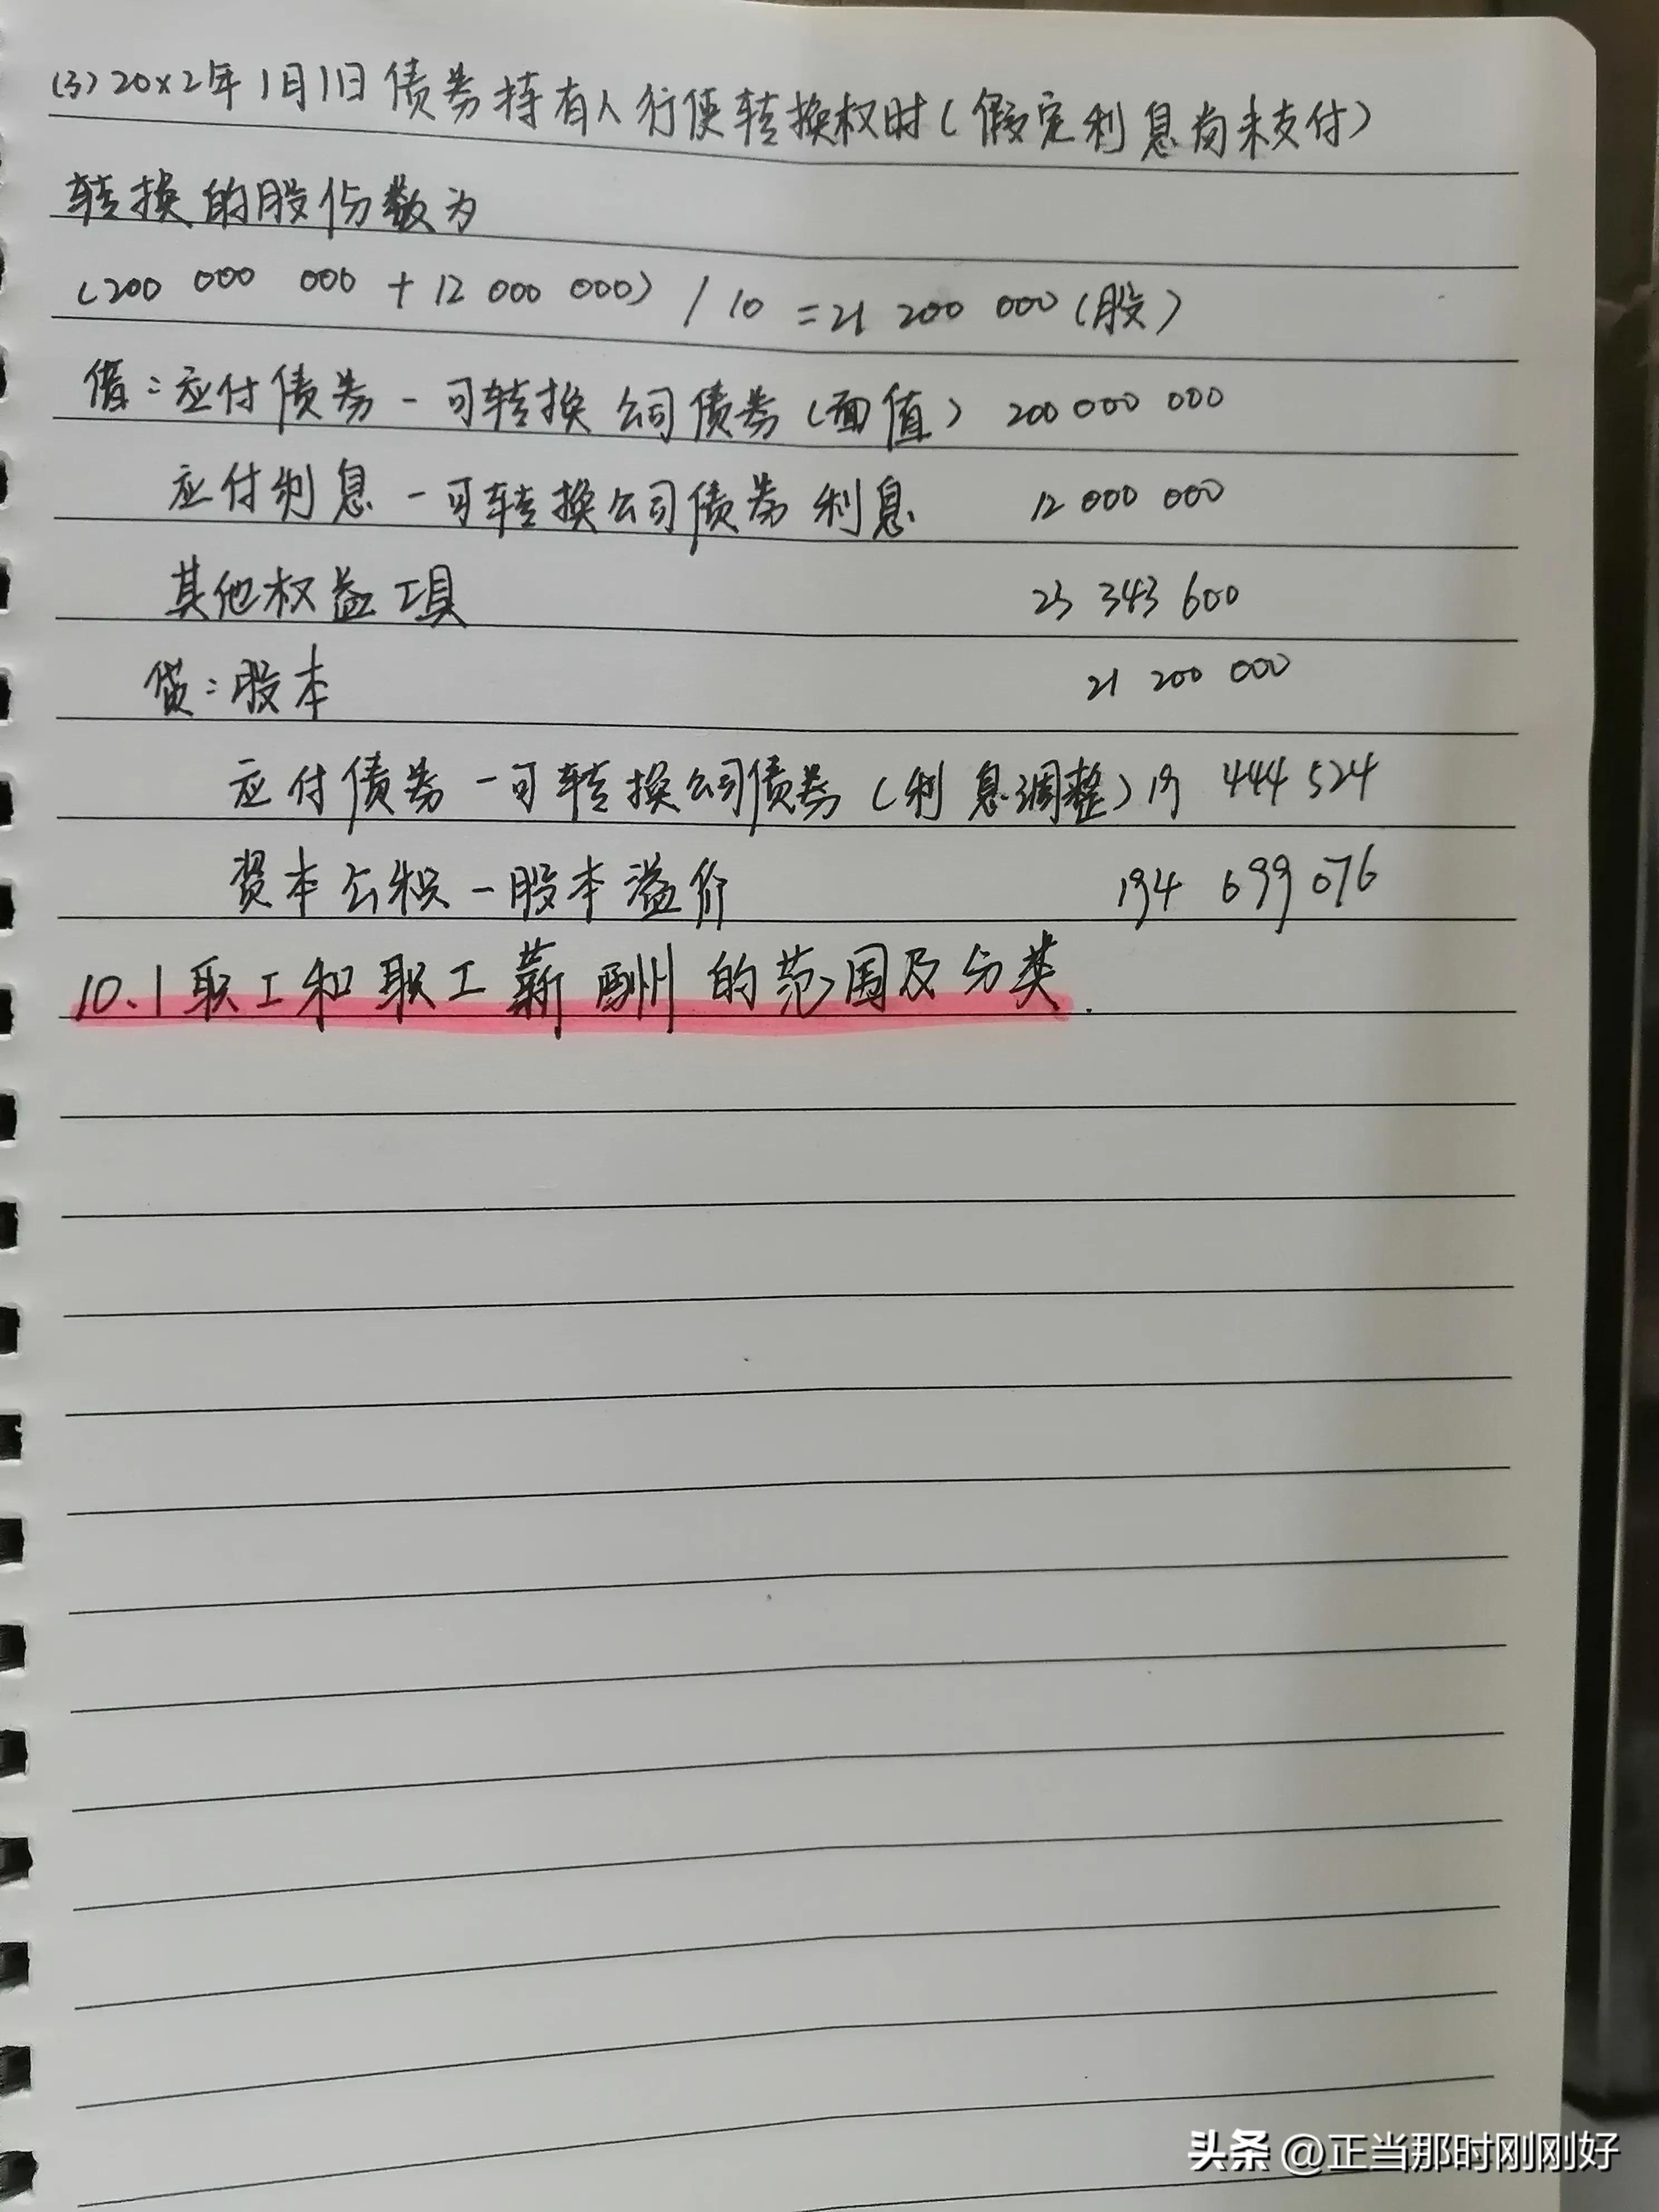 (3) 20×2年1月1日债券持有人行使转换权时(假定利息尚未支付)
转换的股份数为
(200 000 000 + 12 000 000) / 10 = 21 200 000 (股)
借:应付债券-可转换公司债券(面值) 200 000 000
应付利息-可转换公司债券利息 12 000 000
其他权益工具 23 343 600
贷:股本 21 200 000
应付债券-可转换公司债券(利息调整) 19 444 524
资本公积-股本溢价 194 699 076
10.1 职工和职工薪酬的范围及分类.
头条 @正当那时刚刚好